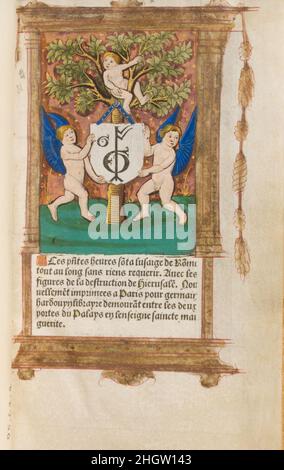 Ces pn̄tes heures sōt a lusaige de Rōme
tout au long sans riens requerir. Auec ses
figures de la destruction de Hierusalē. Nou
uellemēt imprimees a Paris pour germain
hardouyn libraire demourāt entre les deux
portes du Palays en lenseigne saincte mar
guerite.
alamy
Image ID: 2HGW143
www.alamy.com